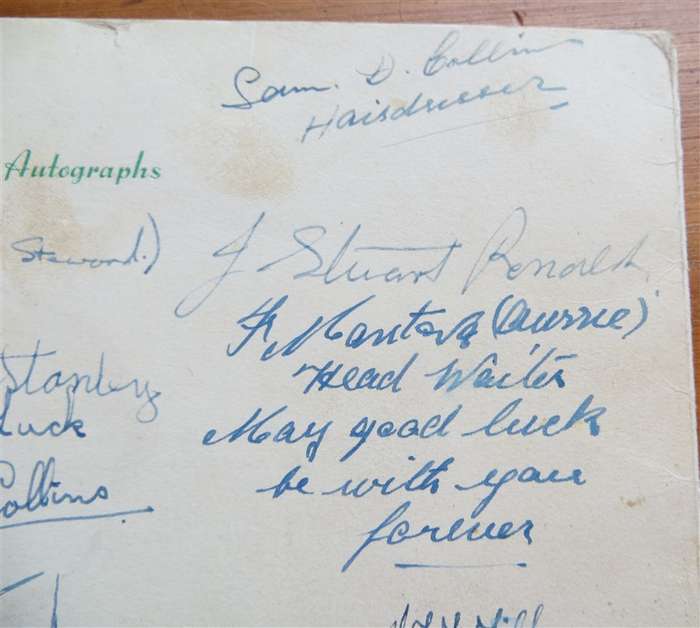 Sam. D. Collins
Hairdresser
Autographs
Steward.)
J Stuart
Head Waiter
May good luck
be with you
forever
Stanley
Luck
Collins
Hill